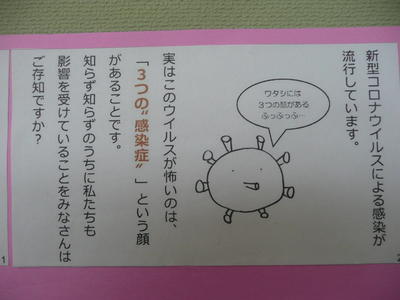 新型コロナウイルスによる感染が
流行しています。
ワタシには
3つの顔がある
ふっふっふ…
実はこのウイルスが怖いのは、
「3つの〝感染症〟」という顔
があることです。
知らず知らずのうちに私たちも
影響を受けていることをみなさんは
ご存知ですか？
2
1